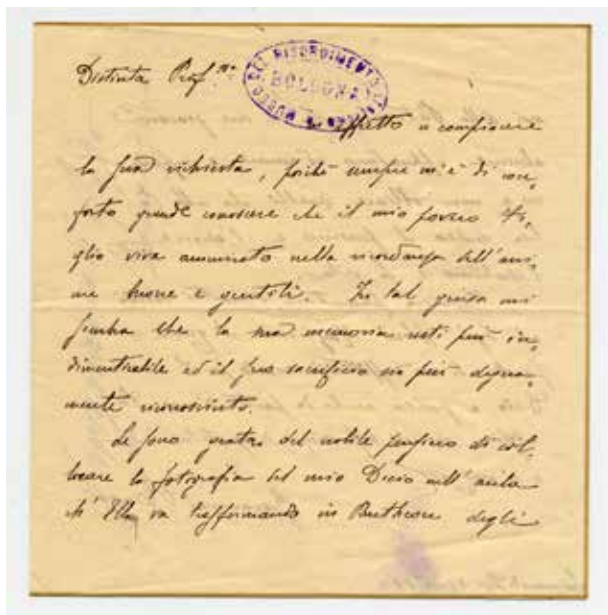 Distinta Prof.ssa
MUSEO DEL RISORGIMENTO ITALIANO
BOLOGNA
M'affretto a compiacere
la Sua richiesta, poiché sempre m'è di con=
forto grande conoscere che il mio povero Fi=
glio viva ammirato nella ricordanza dell'ani=
me buone e gentili. In tal guisa mi
sembra che la sua memoria resti più in=
dimenticabile ed il suo sacrificio sia più degna=
mente riconosciuto.
Le sono grata del nobile pensiero di col=
locare la fotografia del mio Decio nell'aula
ch'Ella va trasformando in Pantheon degli